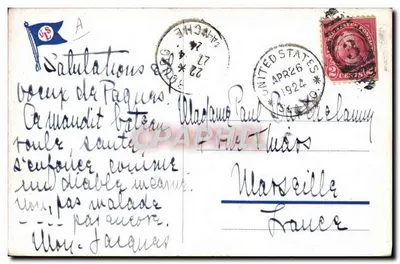 Salutations
voeux de Pâques!
Ce maudit bateau
roule, saute,
s'enfonce comme
un diable incarné
non, pas malade
---- pas encore.
Mon Jacques
UNITED STATES
APR 26
1924
2 CENTS 2
Madame Paul
Marseille
France